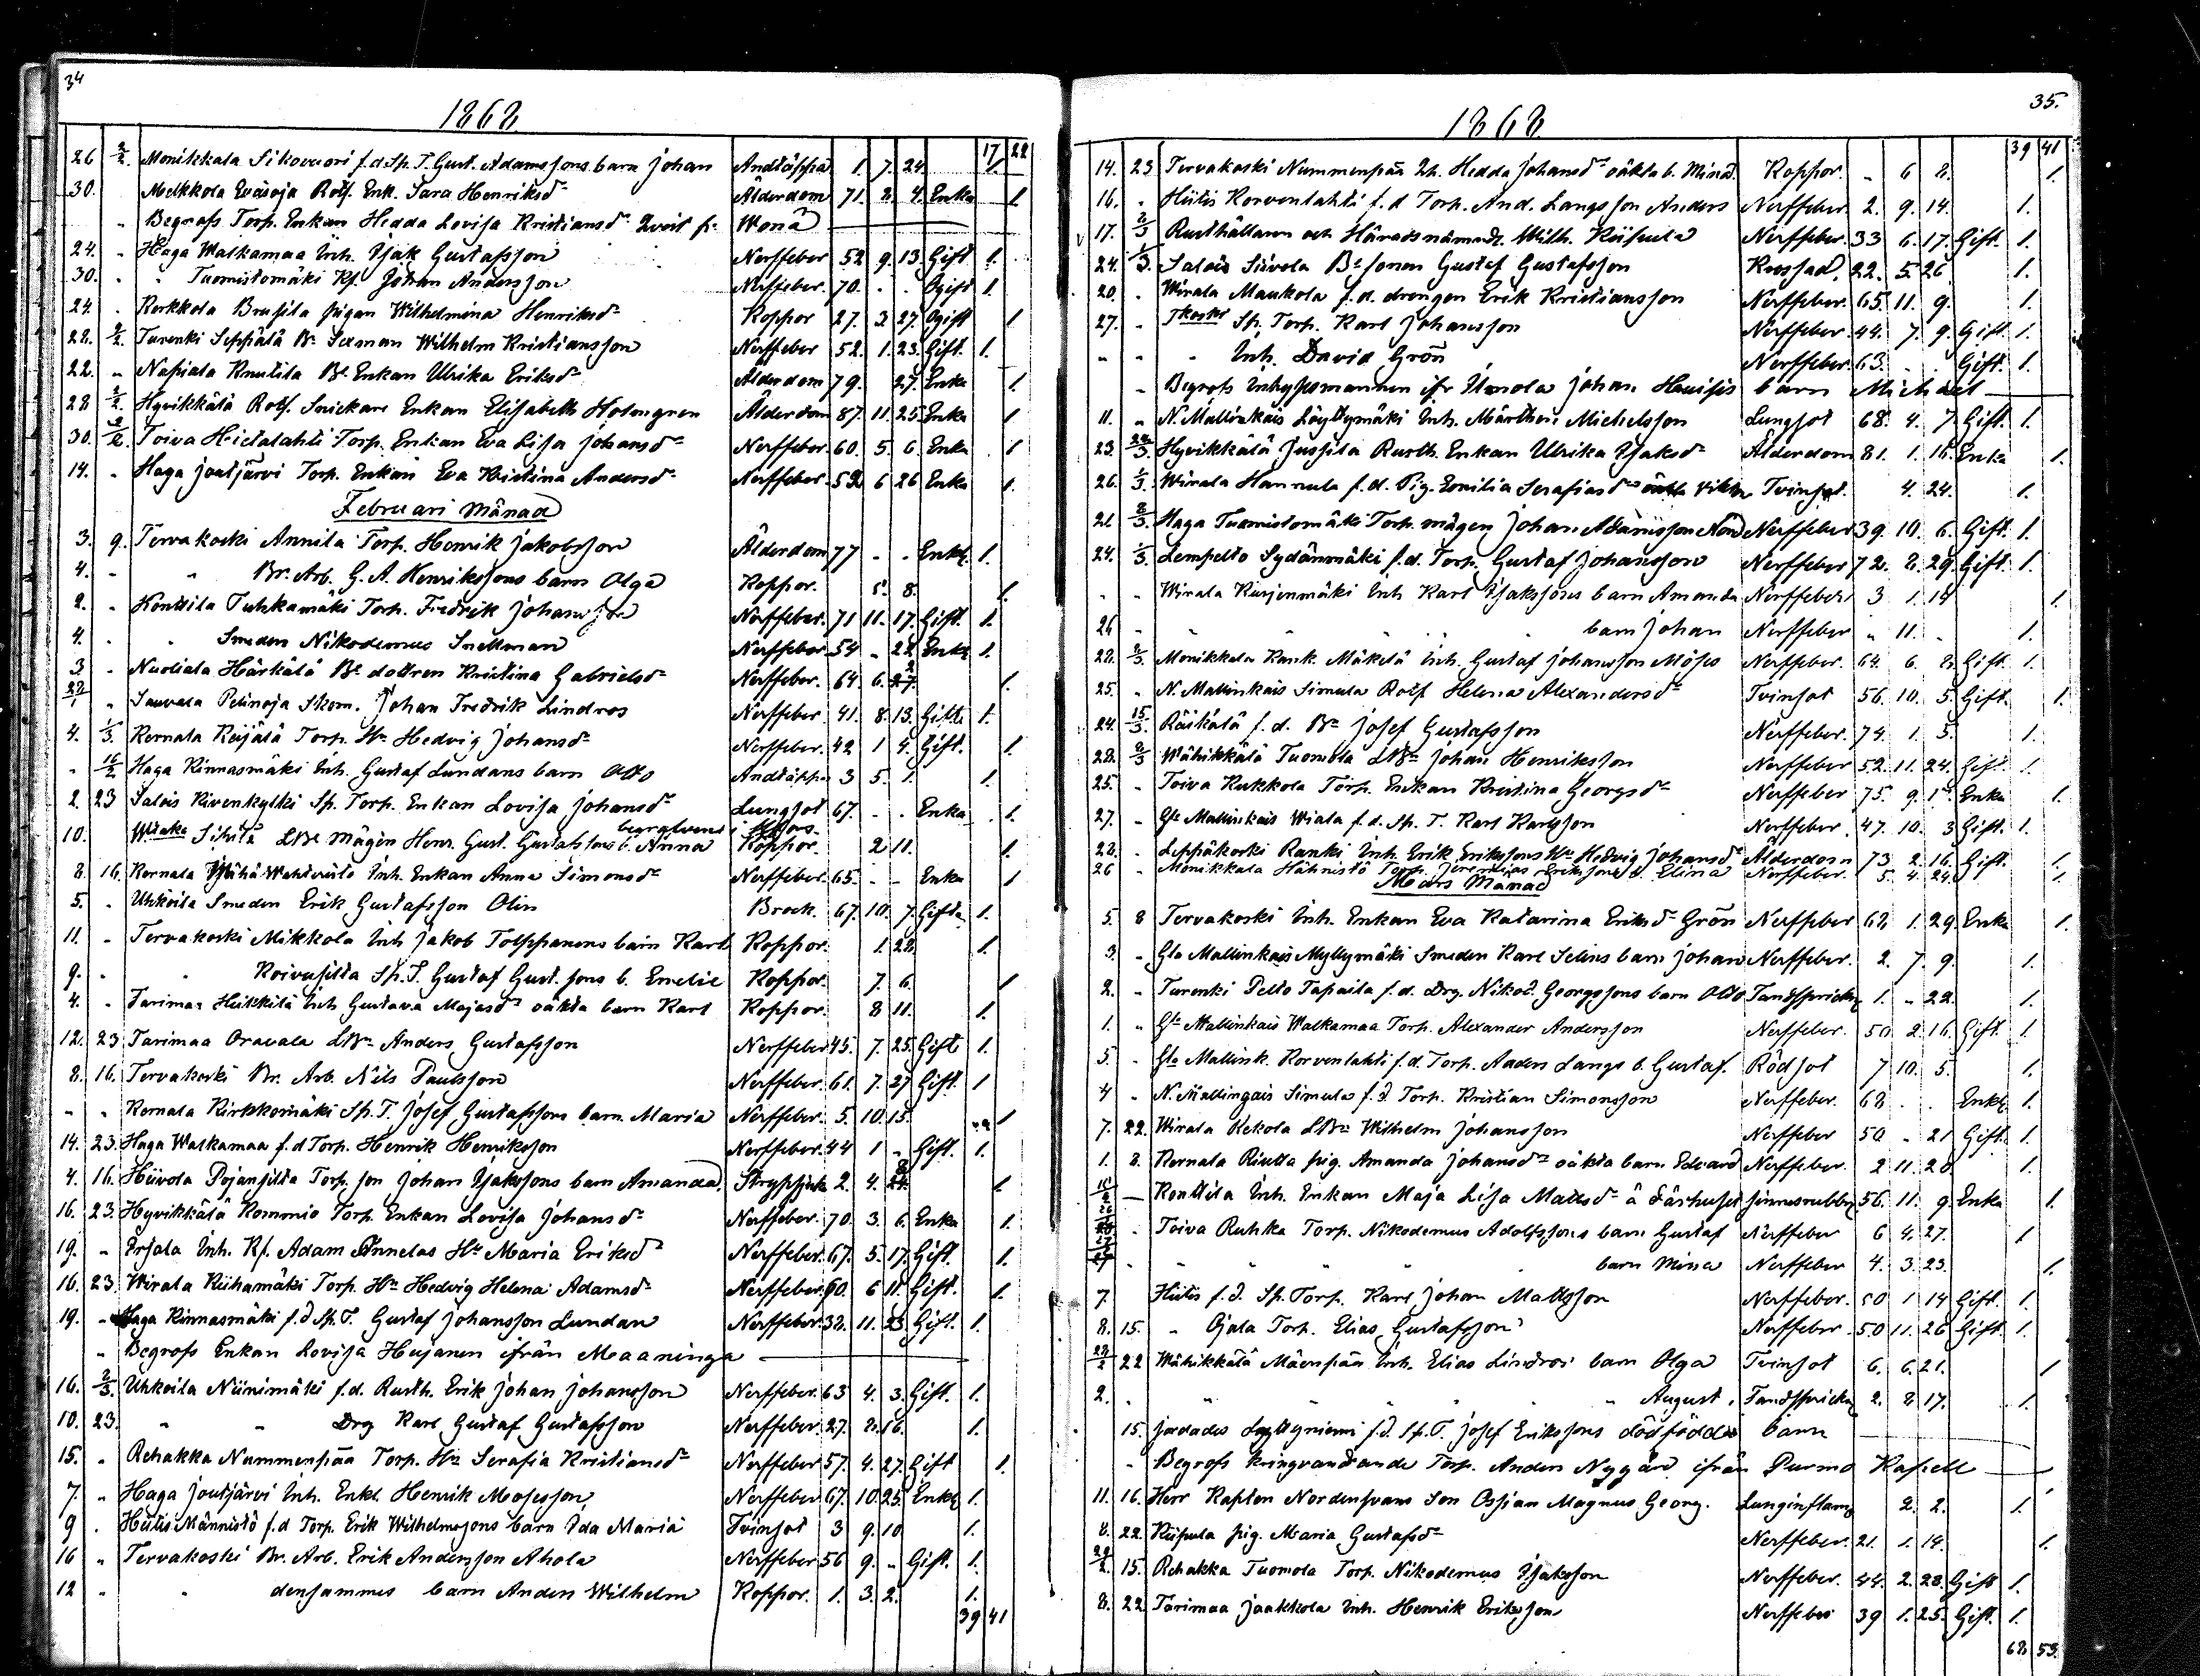 34
1868
17 22
26 2/2 Monikkala Sikovuori f.d. Sp. T. Gust. Adamssons barn Johan Andtäppa 1. 7. 24 1.
30. Melkkola Eväsoja Rotf. Enk. Sara Henriksdr Ålderdom 71. 2. 4. Enka 1
" Begrofs Torp. Enkan Hedda Lovisa Kristiansdr Qvist fr. Wonå
24. " Haga Walkamaa Inh. Isak Gustafsson Nerffeber 52 9. 13. Gift 1.
30. " " Tuomistomäki Kf. Johan Andersson Nerffeber. 70. . . Ogift 1.
24. . Kerkkola Brusila pigan Wilhelmina Henriksdr Koppor 27. 3 27. Ogift 1
28. 2/2 Turenki Seppälä Bn Sexman Wilhelm Kristiansson Nerffeber 52. 1. 23. Gift. 1.
22. " Napiala Knutila Be Enkan Ulrika Eriksdr Ålderdom 79. 27. Enka 1.
28 2/2. Hyvikkälä Rotf. Snickare Enkan Elisabeth Holmgren Ålderdom 87. 11. 25. Enka 1
30. 2/2. Toiva Hietalahti Torp. Enkan Eva Lisa Johansdr Nerffeber 60. 5. 6. Enka 1
14. . Haga Joutjärvi Torp. Enkan Eva Kristina Andersdr Nerffeber. 52 6 26 Enka 1.
Februari Månad
3. 9. Tervakoski Annila Torp. Henrik Jakobsson Ålderdom 77 - . Enkl. 1.
4. " " Br. Arb. G. A. Henrikssons barn Olga Koppor. 5. 8. 1.
2. . Konttila Tuhkamäki Torp. Fredrik Johansson Nerffeber. 71 11. 17. Gift. 1.
4. . " Smeden Nikodemus Snellman Nerffeber 54 - 28 Enkl 1.
3 . Nuoliala Härkälä Be dottren Kristina Gabrielsdr Nerffeber. 64. 6. 27. 1.
28/1 " Sauvala Pelinoja Skom. Johan Fredrik Lindros Nerffeber. 41. 8. 13. Gift 1.
4. 1/3. Kernala Koijälä Torp. Hu Hedvig Johansdr Nerffeber. 42 1 4. Gift. 1.
" 16/2 Haga Kinnasmäki Inh. Gustaf Lundans barn Otto Andtäppa 3 5. 1. 1.
2. 23 Salois Kivenkylki Sp. Torp. Enkan Lovisa Johansdr Lungsot 67. . . Enka 1.
10. Sihilä LBe Mågen Henr. Gust. Gustafssons b. Anna Koppor. 2 11. 1.
8. 16. Kernala Inh. Enkan Anna Simonsdr Nerffeber. 65. - - Enka 1
5. . Uhkoila Smeden Erik Gustafsson Olin Brock. 67. 10. 7. Gift 1.
11. " Tervakoski Mikkola Inh Jakob Tolppanens barn Karl Koppor. 1. 28. 1.
9. . " Koivusilta Sp. T. Gustaf Gust. sons b. Emelie Koppor. 7. 6. 1
4. . Tarimaa Heikkilä Inh Gustava Majasdr oäkta barn Karl Koppor. 8 11. 1.
12. 23 Tarimaa Oravala LBn Anders Gustafsson Nerffeber 45. 7. 25. Gift 1.
8. 16. Tervakoski Br. Arb. Nils Paulsson Nerffeber. 61. 7. 27 Gift. 1
" " Kernala Kirkkomäki Sp. T. Josef Gustafssons barn Maria Nerffeber. 5. 10. 15. 1
14. 23. Haga Walkamaa f.d Torp. Henrik Henriksson Nerffeber. 44 1 - Gift. 1.
4. 16. Hiivola Pojansilta Torp. son Johan Isakssons barn Amanda. Strypsjuka 2. 4. 24. 1
16. 23. Hyvikkälä Kommonio Torp. Enkan Lovisa Johansdr Nerffeber. 70. 3. 6. Enka 1.
19. " Erjala Inh. Kf. Adam Annelas Hu Maria Eriksdr Nerffeber. 67. 5. 17. Gift. 1.
16. 23. Wirala Riihamäki Torp. Hu Hedvig Helena Adamsdr Nerffeber. 60. 6 11. Gift. 1.
19. " Haga Kinnasmäki f.d Sp. T. Gustaf Johansson Lundan Nerffeber. 32. 11. 23. Gift. 1.
" Begrofs Enkan Lovisa Hujanen ifrån Maaninga
16. 2/3. Uhkoila Niinimäki f.d. Rusth. Erik Johan Johansson Nerffeber. 63 4. 3. Gift. 1.
10. 23. " " Drg Karl Gustaf Gustafsson Nerffeber. 27. 2. 16. 1.
15. " Rehakka Nummenpää Torp. Hu Serafia Kristiansdr Nerffeber. 57. 4. 27. Gift 1.
7. " Haga Joutjärvi Inh. Enkl. Henrik Mosesson Nerffeber. 67. 10. 25. Enkl. 1.
9 . Hiitis Männistö f.d Torp. Erik Wilhelmssons barn Ida Maria Tvinsot 3 9. 10 1.
16 " Tervakoski Br. Arb. Erik Andersson Ahola Nerffeber. 56 9. - Gift. 1.
12 " " densammes barn Anders Wilhelm Koppor. 1. 3. 2. 1.
39 41
35.
1868
39 41
14. 23 Tervakoski Nummenpää Inh. Hedda Johansdr oäkta b. Minä. Koppor. - 6 8. 1.
16. . Hiitis Korvenlahti f.d Torp. And. Langs son Anders Nerffeber 2. 9. 14. 1.
17. 2/3 Rusthållaren och Häradsnämd. Wilh. Kiipula Nerffeber. 33 6. 17. Gift. 1.
24. 1/3. Salois Siivola Be sonen Gustaf Gustafsson Rossad. 22. 5. 26 1.
20. . Wirala Maukola f.d. drengen Erik Kristiansson Nerffeber. 65. 11. 9. 1.
27. " Tkoski Sp. Torp. Karl Johansson Nerffeber. 44. 7. 9. Gift. 1.
" " " Inh. David Grön Nerffeber. 63. . Gift. 1.
" Begrofs Inhysesmannen ifr. Johan barn Michael
11. " N. Mallinkais Löyttymäki Inh. Mårthen Michelsson Lungsot 68. 4. 7. Gift. 1.
23. 22/3. Hyvikkälä Jussila Rusth. Enkan Ulrika Isaksdr Ålderdom 81. 1. 16. Enka 1.
26. 1/3. Wirala Hannula f.d. Pig. Emilia Serafiasdr oäkta Viktor Tvinsot. 4. 24. 1.
21 8/3. Haga Tuomistomäki Torp. mågen Johan Adamsson Nord Nerffeber 39. 10. 6. Gift. 1.
24. 1/3. Lempelto Sydänmäki f.d. Torp. Gustaf Johansson Nerffeber 72. 8. 29. Gift. 1.
" " Wirala Kurjenmäki Inh Karl Isakssons barn Amanda Nerffeber 3 1. 14 1.
26 " " " " barn Johan Nerffeber " 11. - 1.
28. 2/3. Monikkala Kank. Mäkelä Inh. Gustaf Johansson Moses Nerffeber. 64. 6. 8. Gift. 1.
25. " N. Mallinkais Simula Rotf Helena Alexandersdr Tvinsot 56. 10. 5. Gift. 1.
24. 15/3. Räikälä f.d. Bn Josef Gustafsson Nerffeber. 74. 1. 5. 1.
28. 2/3 Wähikkälä Tuomola LBn Johan Henriksson Nerffeber 52. 11. 24. Gift. 1.
25. " Toiva Kukkola Torp. Enkan Kristina Georgsdr Nerffeber 75. 9. 1. Enka 1.
27. " Gla Mallinkais Wiala f.d. Sp. T. Karl Karlsson Nerffeber. 47. 10. 3 Gift. 1.
28. . Leppäkoski Ranki Inh. Erik Erikssons Hu Hedvig Johansdr Ålderdom 73 2. 16. Gift 1.
26 " Monikkala Hähnistö Torp. Jeremias Erikssons d. Elina Nerffeber. 5. 4. 24. 1.
Mars Månad
5. 8 Tervakoski Inh. Enkan Eva Katarina Eriksdr Grön Nerffeber 68. 1. 29. Enka 1.
3. " Gla Mallinkais Myllymäki Smeden Karl Selins barn Johan Nerffeber. 2. 7. 9. 1.
2. " Turenki Pelto Tapaila f.d. Drg. Nikod. Georgssons barn Otto Tandspricka 1. " 22. 1.
1. " Gla Mallinkais Walkamaa Torp. Alexander Andersson Nerffeber. 50 2. 16. Gift 1.
5. . Gla Mallink. Korvenlahti f.d. Torp. Anders Langs b. Gustaf. Rödsot 7 10. 5. 1.
4 " N. Mallingais Simula f.d Torp. Kristian Simonsson Nerffeber. 68 . . Enkl. 1.
7. 22. Wirala Uekola LBn Wilhelm Johansson Nerffeber 50 - 21 Gift. 1.
1. 8. Kernala Riutta pig. Amanda Johansdr oäkta barn Edvard Nerffeber. 2 11. 20. 1.
Konttila Inh. Enkan Maja Lisa Mattsdr å Dårhuset sinnesrubbn 56. 11. 9. Enka 1.
Toiva Ruhka Torp. Nikodemus Adolfssons barn Gustaf Nerffeber 6 4. 27. 1
" " " " barn Mina Nerffeber 4. 3. 23. 1.
7. Hiitis f.d. Sp. Torp. Karl Johan Mattsson Nerffeber. 50 1 14 Gift. 1.
8. 15. " Ojala Torp. Elias Gustafsson Nerffeber. 50 11. 26 Gift 1.
28/2 22 Wähikkälä Mäenpää Inh. Elias Lindros barn Olga Tvinsot 6. 6. 21. 1
2. " " " " August. Tandspricka 2. 8 17. 1.
15. Jordades Löyttyniemi f.d. Sp. T. Josef Erikssons dödfödda barn
" Begrofs kringvandrande Torp. Anders Nygård ifrån Purmo Kapell
11. 16. Herr Kapten Nordensvans Son Ossian Magnus Georg. Lunginflamg 2. 2. 1.
8. 22. Kiipula pig. Maria Gustafsdr Nerffeber. 21. 1. 14. 1.
29/2. 15. Rehakka Tuomola Torp. Nikodemus Isaksson Nerffeber. 44. 2. 28. Gift 1.
8. 22. Tarimaa Jaakkola Inh. Henrik Eriksson Nerffeber 39 1. 25. Gift. 1.
68 53.